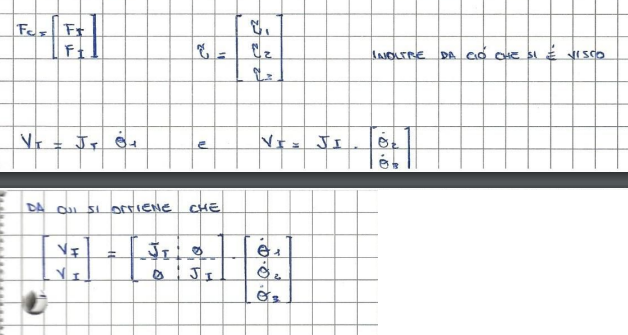 Fc = [ F_I ; F_I ]   τ = [ τ1 ; τ2 ; τ3 ]   INOLTRE DA CIÓ CHE SI É VISTO
V_I = J_I θ̇1   e   V_I = J_I · [ θ̇2 ; θ̇3 ]
DA QUI SI OTTIENE CHE
[ V_I ; V_I ] = [ J_I 0 ; 0 J_I ] · [ θ̇1 ; θ̇2 ; θ̇3 ]